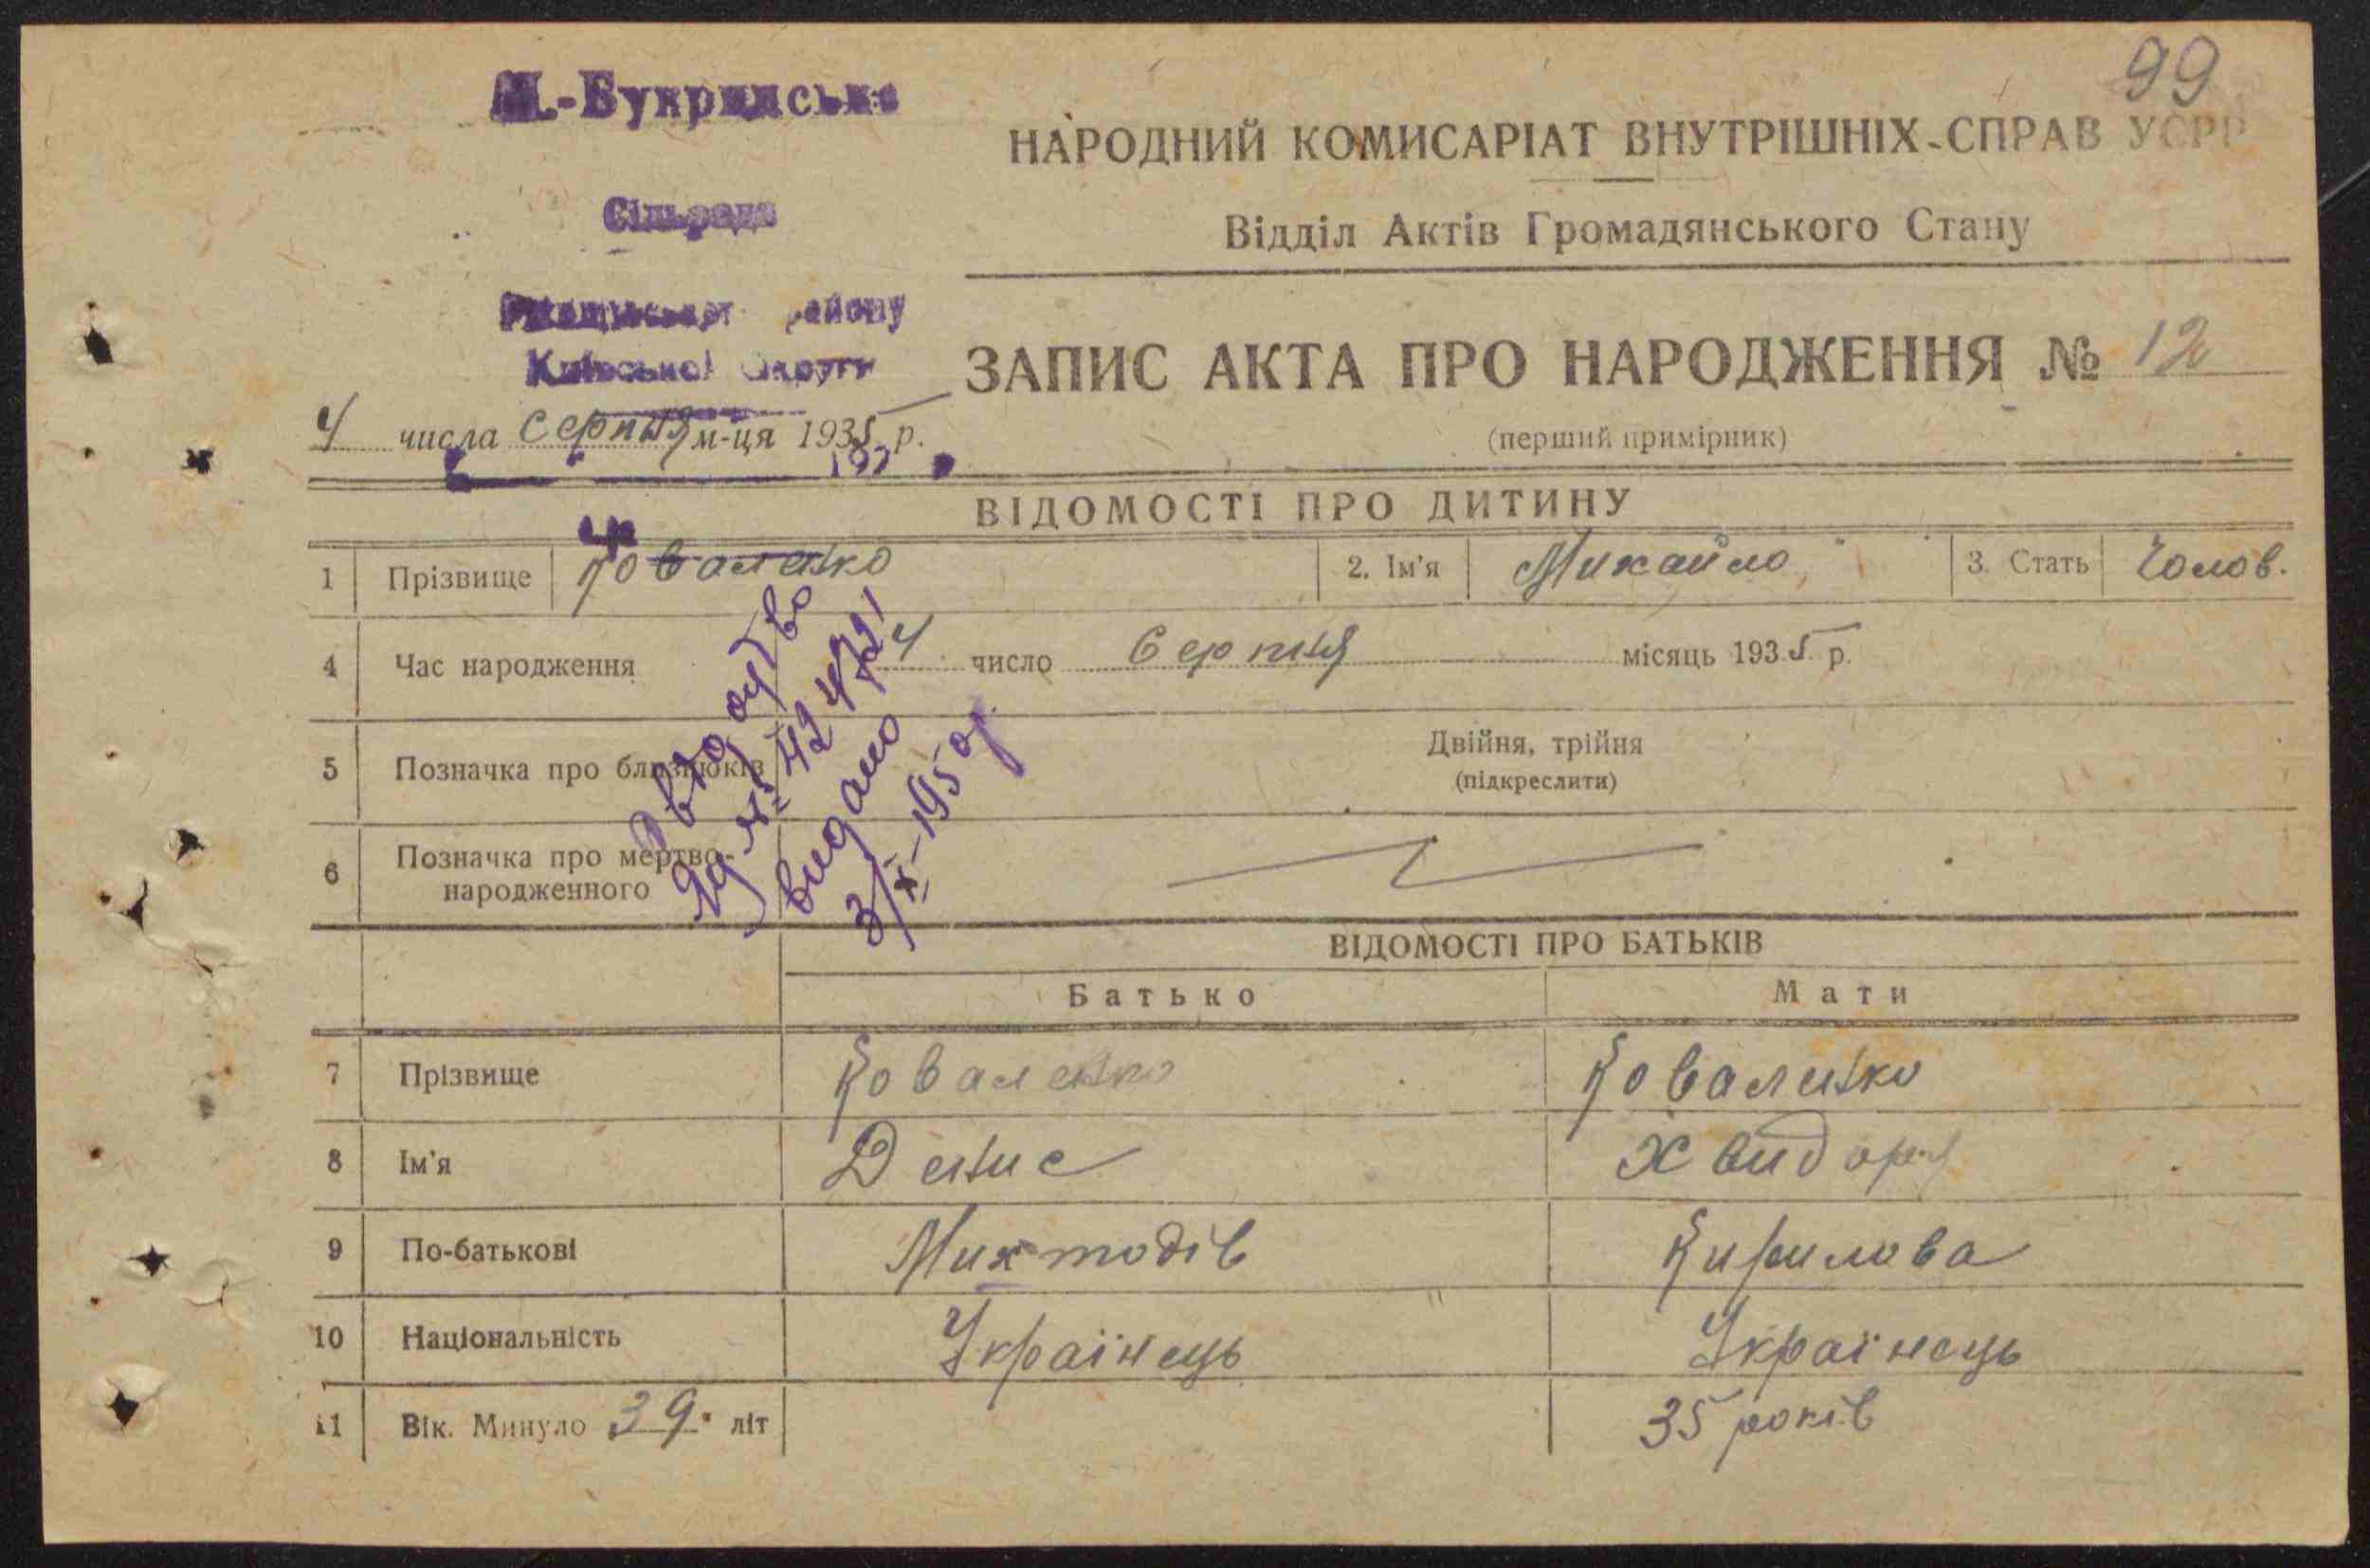 99
М.-Букринська
НАРОДНИЙ КОМИСАРІАТ ВНУТРІШНІХ СПРАВ УСРР
Сільрада
Відділ Актів Громадянського Стану
району
Київської Округи
ЗАПИС АКТА ПРО НАРОДЖЕННЯ № 12
4 числа серпня м-ця 1935 р.
(перший примірник)
192
ВІДОМОСТІ ПРО ДИТИНУ
1 Прізвище Коваленко 2. Ім'я Михайло 3. Стать Чолов.
4 Час народження 4 число Серпня місяць 1935 р.
5 Позначка про близнюків Двійня, трійня
(підкреслити)
6 Позначка про мертво-
народженного
№ 424721
видано
3/X-1950р.
ВІДОМОСТІ ПРО БАТЬКІВ
Батько Мати
7 Прізвище Коваленко Коваленко
8 Ім'я Денис Хвидоря
9 По-батькові Михтодів Кирилова
10 Національність Українець Українець
11 Вік. Минуло 39 літ 35 років